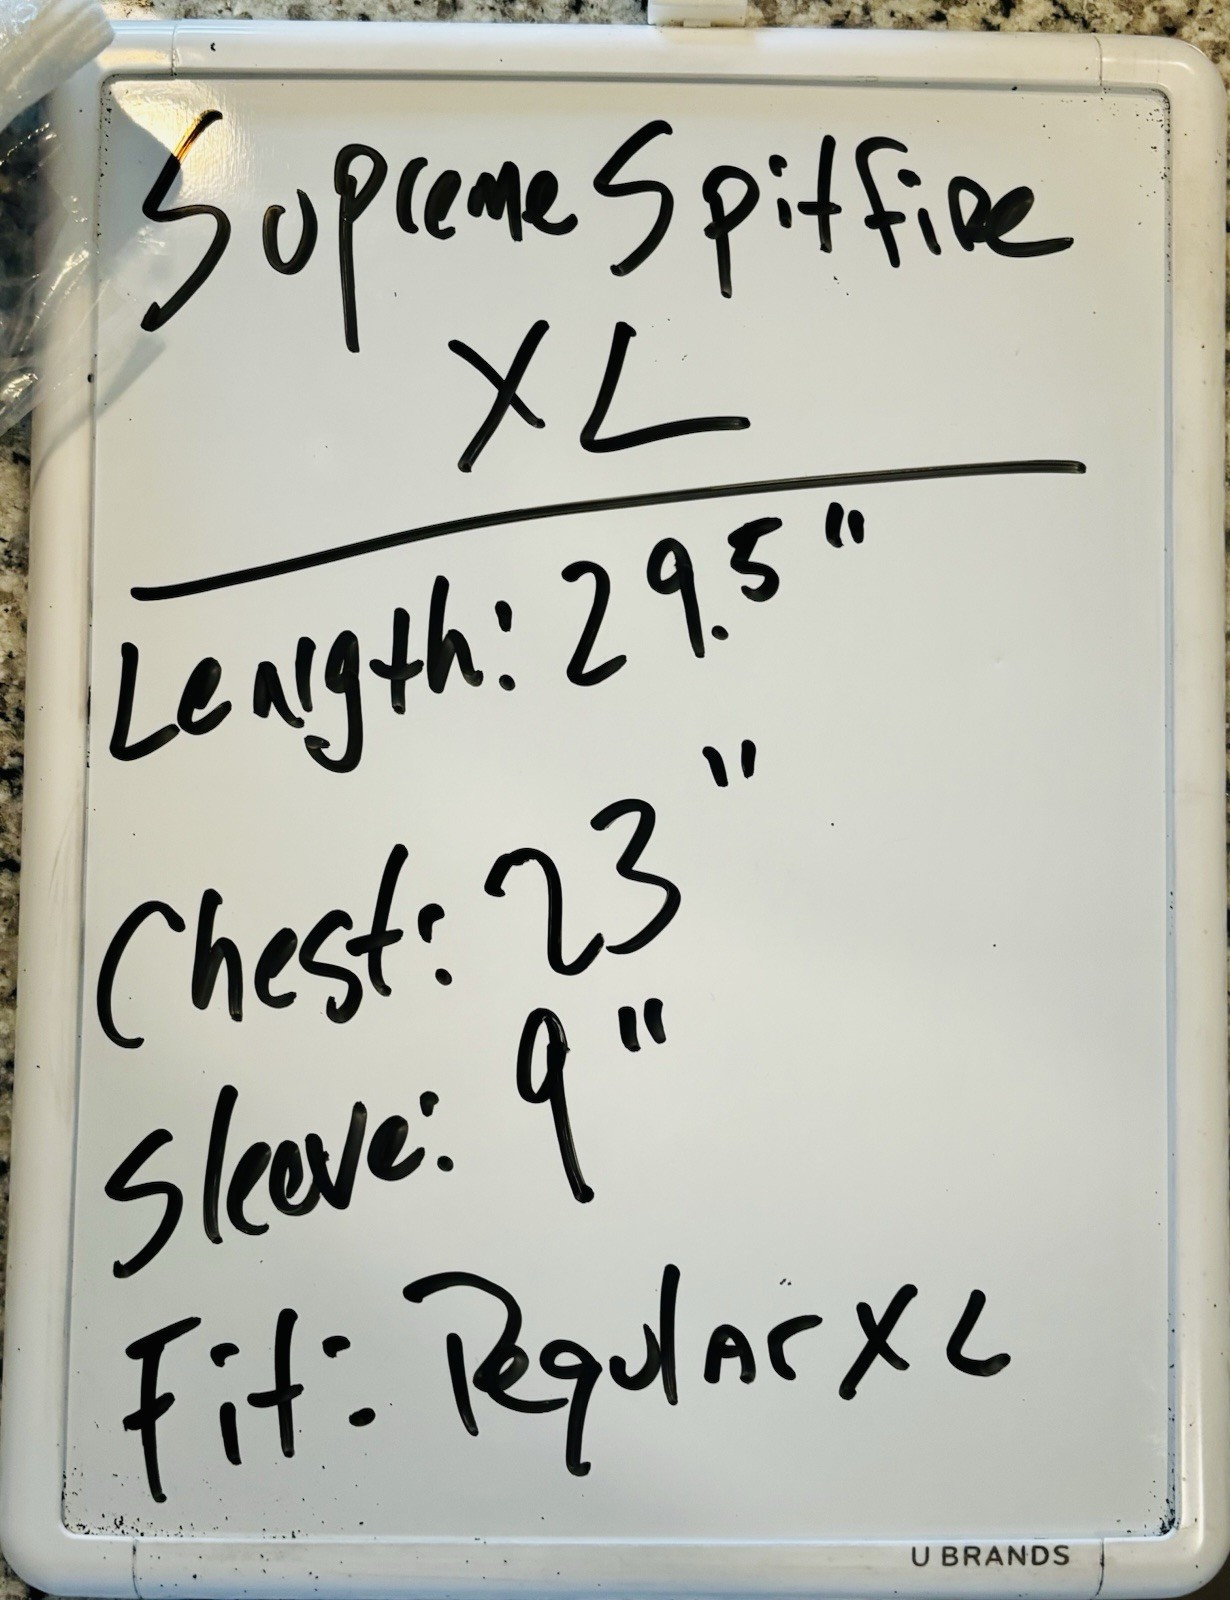 Supreme Spitfire
XL
Length: 29.5"
Chest: 23"
Sleeve: 9"
Fit: Regular XL
U BRANDS